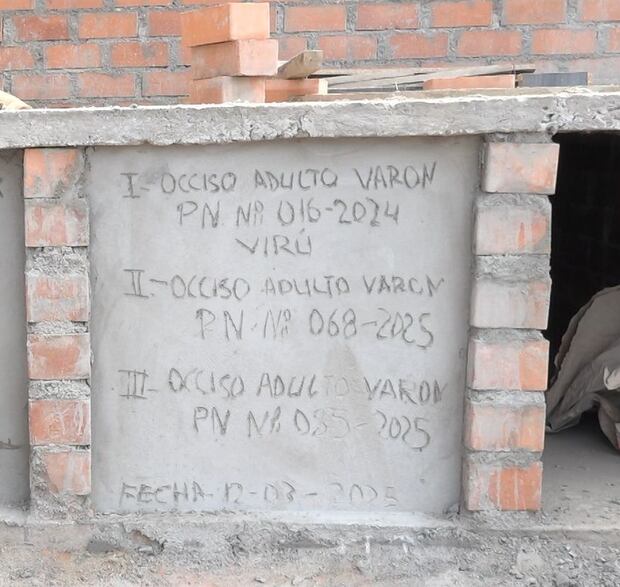 I- OCCISO ADULTO VARON
PN Nº 016-2024
VIRÚ
II.- OCCISO ADULTO VARON
PN-Nº 068-2025
III- OCCISO ADULTO VARON
PN Nº 035-2025
FECHA 12-03-2025